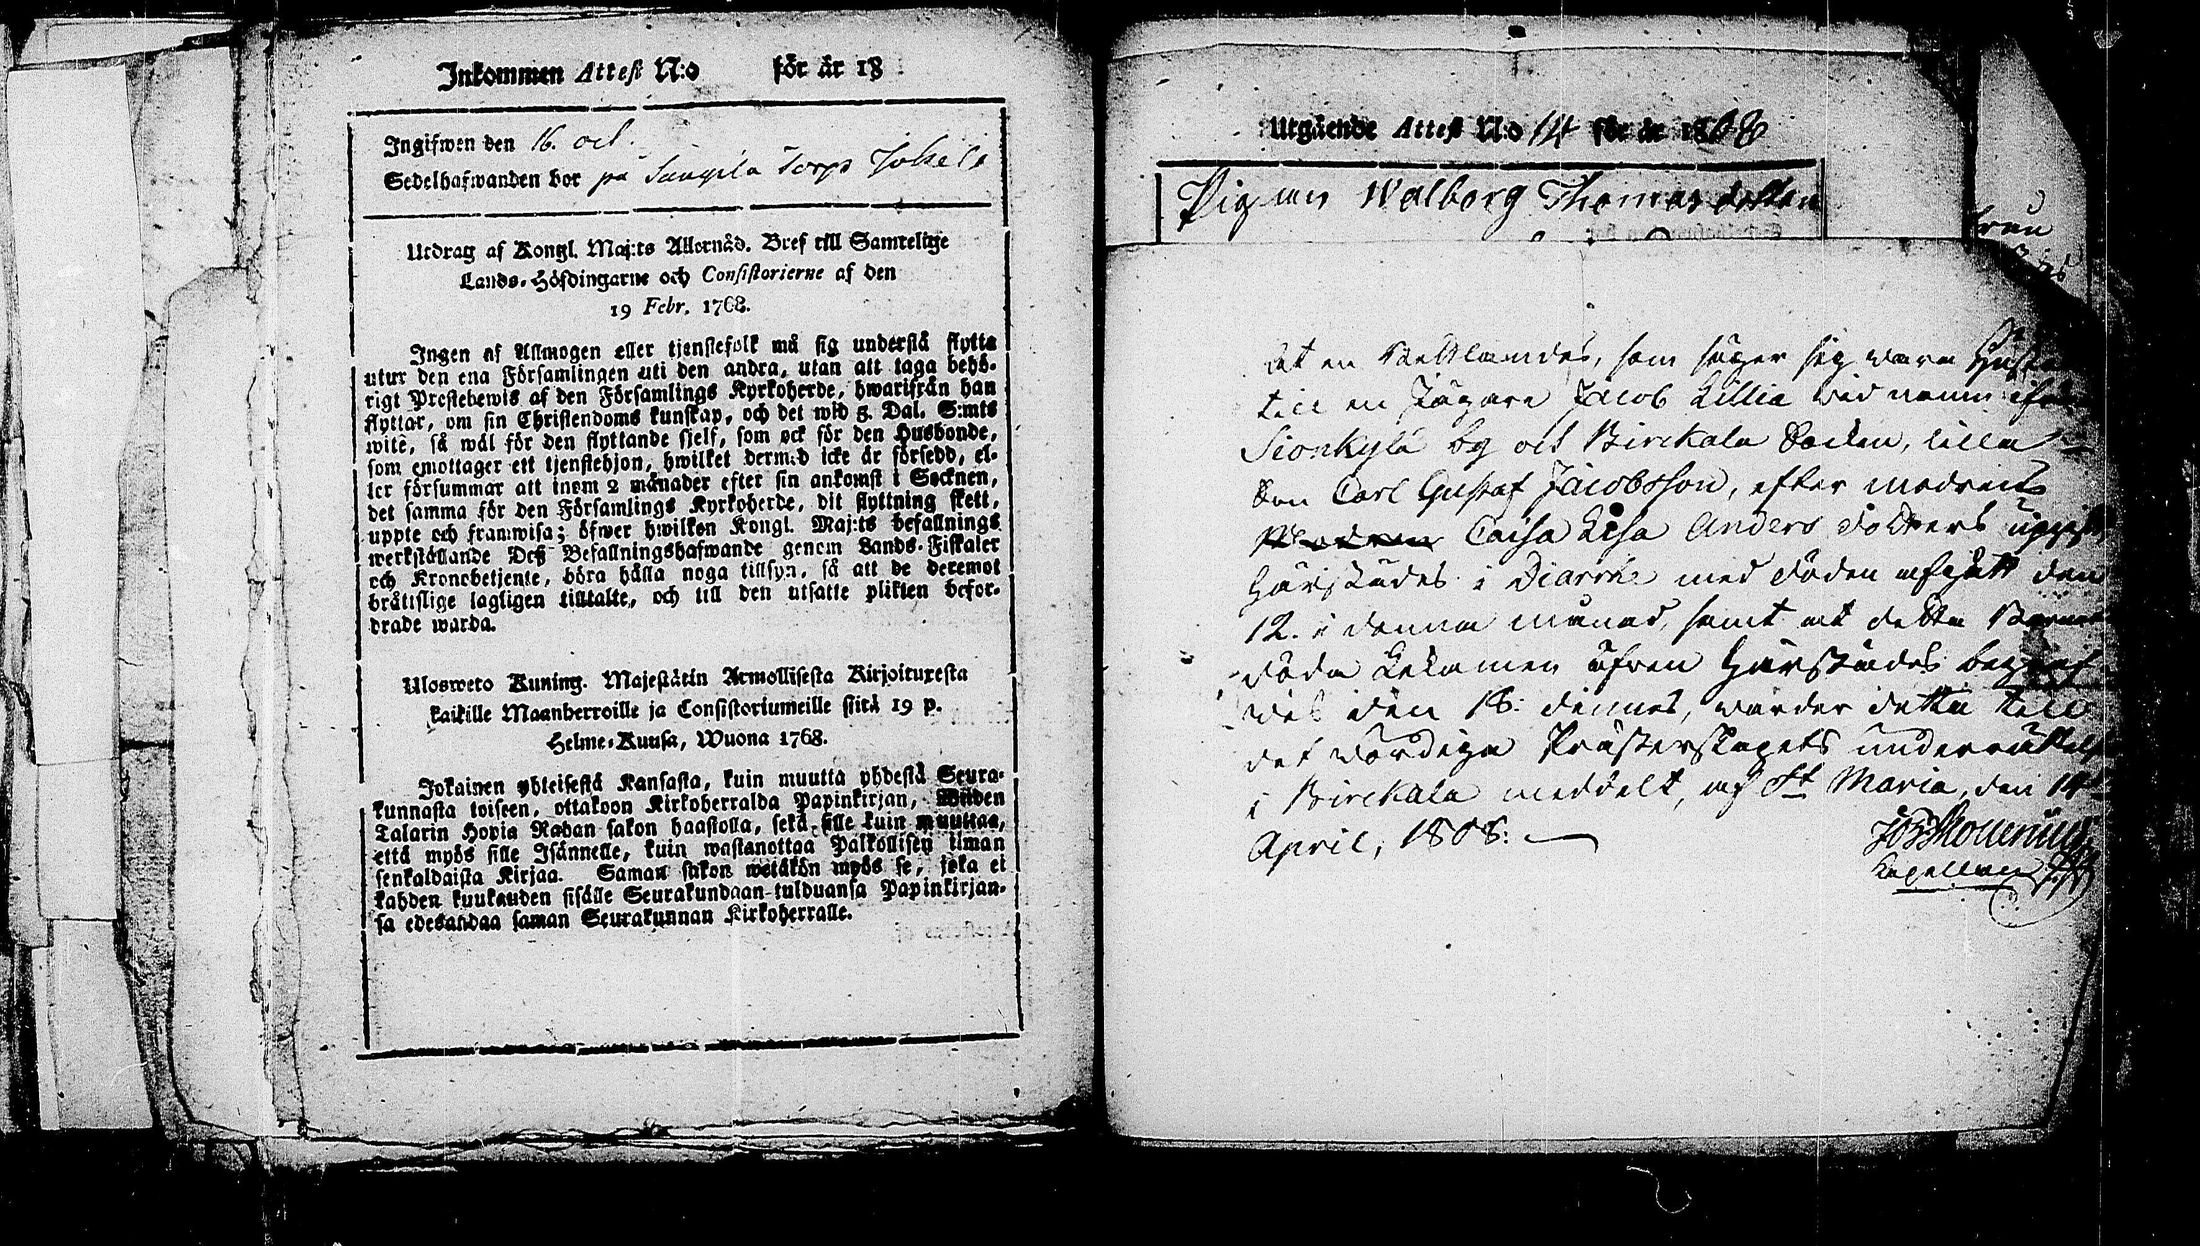 Inkommen Attest N:o för år 18
Ingifwen den 16. oct.
Sedelhafwanden bor på Torp
Utdrag af Kongl. Maj:ts Allernåd. Bref till Samtelige
Lands-Höfdingarne och Consistorierne af den
19 Febr. 1768.
Ingen af Allmogen eller tjenstefolk må sig understå flytta
utur den ena Församlingen uti den andra, utan att taga behö-
rigt Prestebewis af den Församlings Kyrkoherde, hwarifrån han
flyttar, om sin Christendoms kunskap, och det wid 5. Dal. S:mts
wite, så wäl för den flyttande sjelf, som ock för den Husbonde,
som emottager ett tjenstehjon, hwilket dermed icke är försedd, el-
ler försummar att inom 2 månader efter sin ankomst i Socknen,
det samma för den Församlings Kyrkoherde, dit flyttning skett,
uppte och framwisa; öfwer hwilken Kongl. Maj:ts befallnings
werkställande Deß Befallningshafwande genom Lands-Fiskaler
och Kronobetjente, böra hålla noga tillsyn, så att de deremot
bråttslige lagligen tilltalte, och till den utsatte plikten befor-
drade warda.
Ulosweto Kuning. Majestätin Armollisesta Kirjoituxesta
kaikille Maanherroille ja Consistoriumeille siitä 19 p.
Helme-Kuusa, Wuona 1768.
Jokainen yhteisestä Kansasta, kuin muutta yhdestä Seura-
kunnasta toiseen, ottakoon Kirkoherralda Papinkirjan, Wiiden
Talarin Hopia Rahan sakon haastolla, sekä sille kuin muuttaa,
että myös sille Isännelle, kuin wastanottaa Palkollisen ilman
senkaldaista Kirjaa. Saman sakon wetäkön myös se, joka ei
kahden kuukauden sisälle Seurakundaan tulduansa Papinkirjan-
sa edesandaa saman Seurakunnan Kirkoherralle.
Utgående Attest N:o 14 för år 1808
Pigan Walborg Thomasdotter
det en , som säger sig vara
till en Jacob Killia vid namn
by och Birckala Socken, lilla
Son Carl Gustaf Jacobsson, efter
Caisa Lisa Anders dotters
härstädes i med döden afgått den
12. i denna månad, samt at detta
döda äfven härstädes
den 18: dennes, varder detta till
det vördiga Prästerskapets
i Birckala meddelt, af St Maria, den 14
April, 1808:
Kapellan